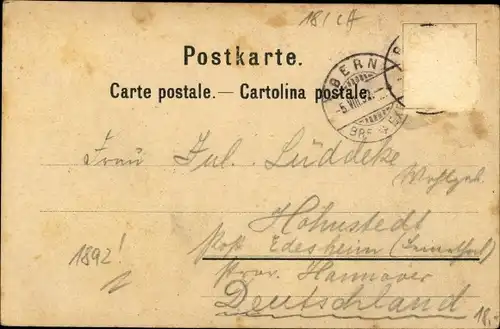 Postkarte.
Carte postale. — Cartolina postale.
BERN
-5.VIII.92.
Frau Jul. Lüddeke
Wohlgeb.
Hohnstedt
Post Edesheim (Leinethal)
Prov. Hannover
Deutschland
1892!
18.-